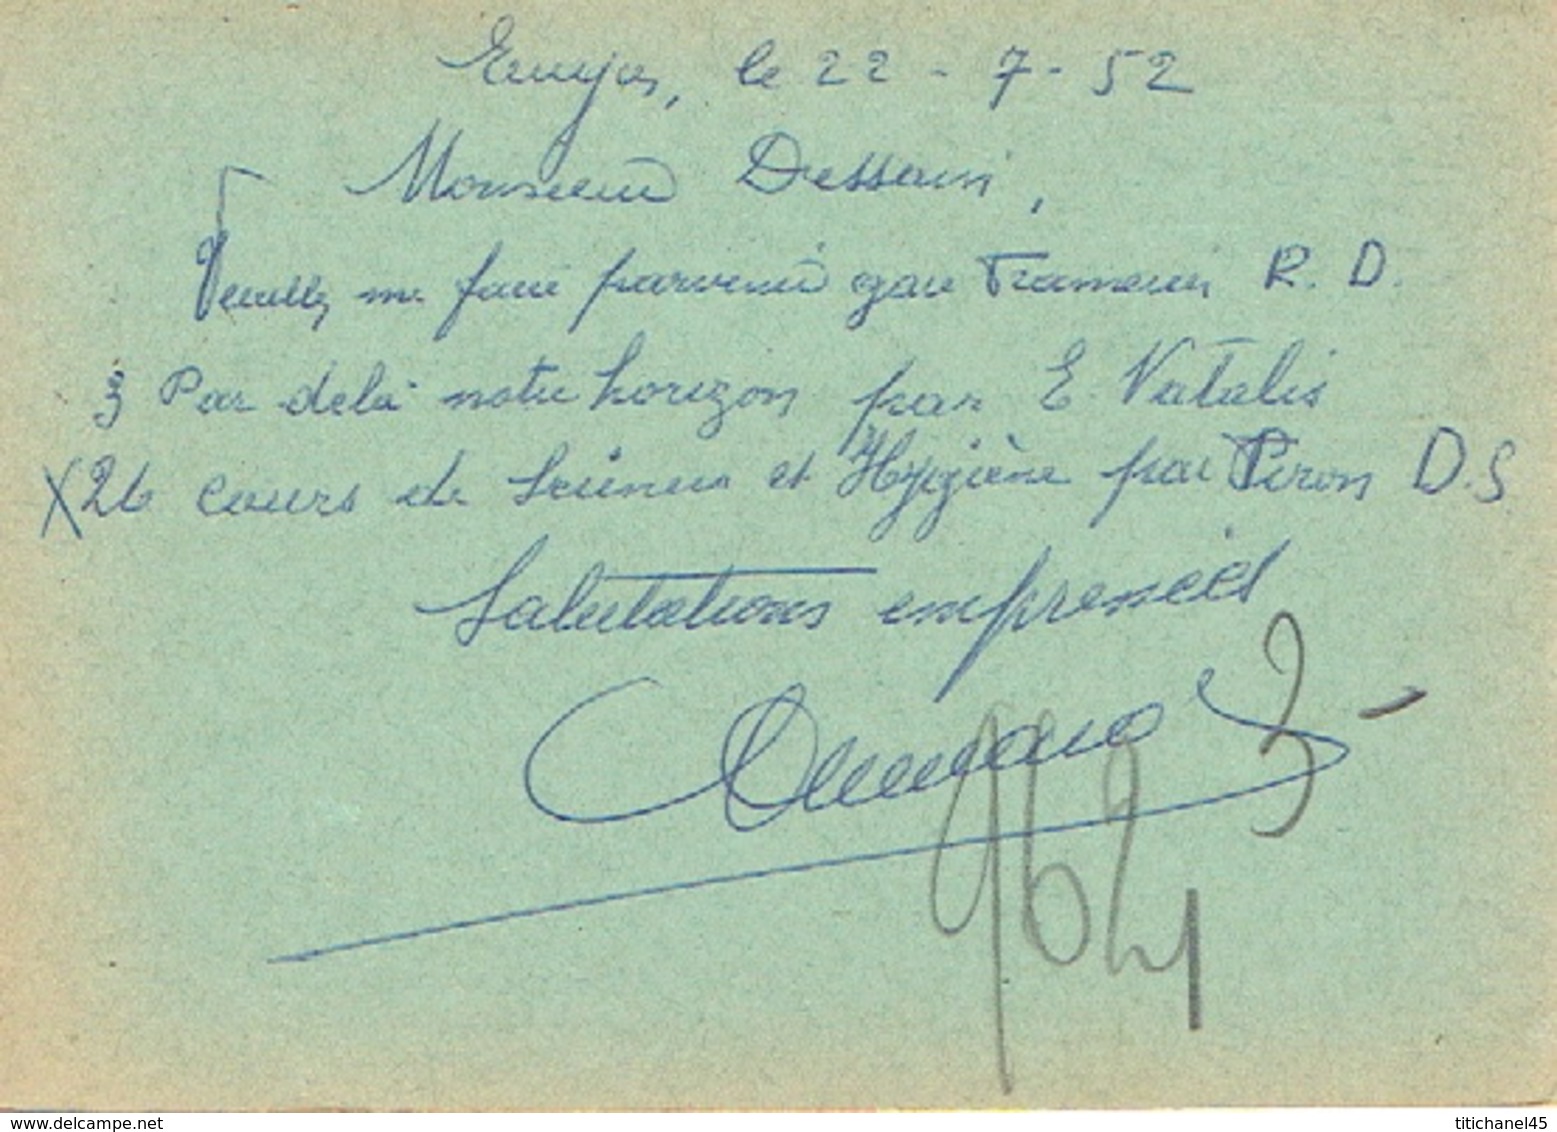 le 22 - 7 - 52
Monsieur Dessain,
Veuillez me faire parvenir gare Trameur R. D.
3 Par delà notre horizon par E. Natalis
X 26 cours de Sciences et Hygiène par Piron D.S
Salutations empressées
3 -
9624
titichanel45